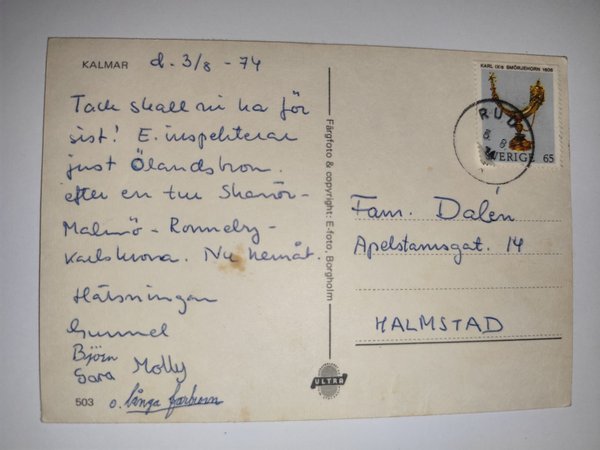 KALMAR d. 3/8 - 74
Tack skall ni ha för
sist! E. inspekterar
just Ölandsbron.
efter en tur Skanör-
Malmö - Ronneby-
Karlskrona. Nu hemåt.
Hälsningar
Gunnel
Björn
Sara Molly
503 o. långa farbrorn
Färgfoto & copyright: E-foto, Borgholm
ULTRA
KARL IX:s SMÖRJEHORN 1606
SVERIGE 65
RUD
Fam. Dalén
Apelstamsgat. 14
HALMSTAD